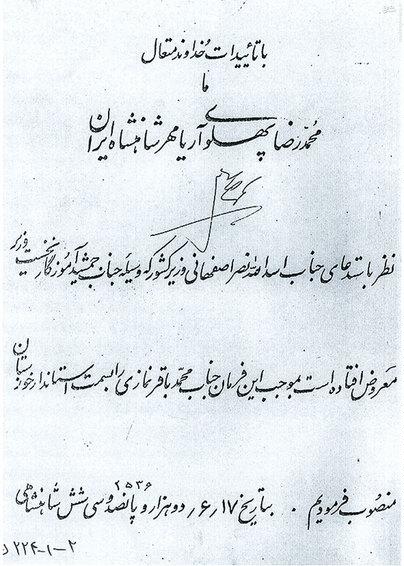 با تأییدات خداوند متعال
ما
محمدرضا پهلوی آریامهر شاهنشاه ایران
نظر باستدعای جناب اسدالله نصر اصفهانی وزیر کشور که وسیله جناب جمشید آموزگار نخست وزیر
معروض افتاده است بموجب این فرمان جناب محمدباقر نمازی را بسمت استاندار خوزستان
منصوب فرمودیم . بتاریخ ۶٫۱۷ دو هزار و پانصد و سی و شش شاهنشاهی
۲۵۳۶
۲۲۴-۱-۲ د